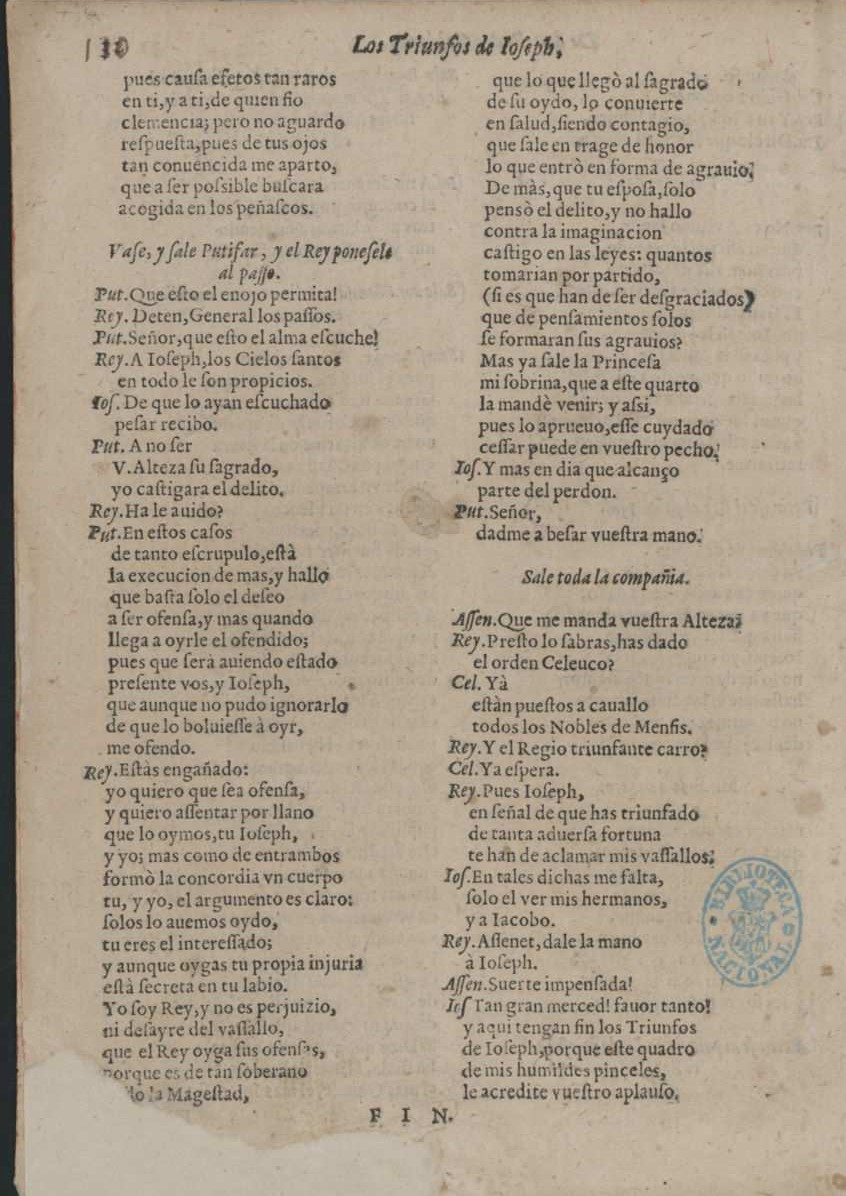 130
Los Triunfos de Ioſeph,
pues cauſa efetos tan raros
en ti,y a ti,de quien fio
clemencia; pero no aguardo
reſpueſta,pues de tus ojos
tan conuencida me aparto,
que a ſer poſsible buſcara
acogida en los peñaſcos.
Vaſe, y ſale Putifar, y el Rey poneſele
al paſſo.
Put.Que eſto el enojo permita!
Rey. Deten,General los paſſos.
Put.Señor,que eſto el alma eſcuche!
Rey.A Ioſeph,los Cielos ſantos
en todo le ſon propicios.
Ioſ.De que lo ayan eſcuchado
peſar recibo.
Put. A no ſer
V.Alteza ſu ſagrado,
yo caſtigara el delito.
Rey.Ha le auido?
Put.En eſtos caſos
de tanto eſcrupulo,eſtà
la execucion de mas,y hallo
que baſta ſolo el deſeo
a ſer ofenſa,y mas quando
llega a oyrle el ofendido;
pues que ſerà auiendo eſtado
preſente vos,y Ioſeph,
que aunque no pudo ignorarlo
de que lo boluieſſe à oyr,
me ofendo.
Rey.Eſtàs engañado:
yo quiero que ſea ofenſa,
y quiero aſſentar por llano
que lo oymos,tu Ioſeph,
y yo; mas como de entrambos
formò la concordia vn cuerpo
tu, y yo, el argumento es claro:
ſolos lo auemos oydo,
tu eres el intereſſado;
y aunque oygas tu propia injuria
eſtà ſecreta en tu labio.
Yo ſoy Rey,y no es perjuizio,
ni deſayre del vaſſallo,
que el Rey oyga ſus ofenſas,
porque es de tan ſoberano
la Mageſtad,
que lo que llegò al ſagrado
de ſu oydo, lo conuierte
en ſalud,ſiendo contagio,
que ſale en trage de honor
lo que entrò en forma de agrauio;
De màs,que tu eſpoſa,ſolo
pensò el delito,y no hallo
contra la imaginacion
caſtigo en las leyes: quantos
tomarian por partido,
(ſi es que han de ſer deſgraciados)
que de penſamientos ſolos
ſe formaran ſus agrauios?
Mas ya ſale la Princeſa
mi ſobrina,que a eſte quarto
la mandè venir; y aſsi,
pues lo aprueuo,eſſe cuydado
ceſſar puede en vueſtro pecho.
Ioſ.Y mas en dia que alcanço
parte del perdon.
Put.Señor,
dadme a beſar vueſtra mano.
Sale toda la compañia.
Aſſen.Que me manda vueſtra Alteza;
Rey.Preſto lo ſabras,has dado
el orden Celeuco?
Cel. Yà
eſtàn pueſtos a cauallo
todos los Nobles de Menfis.
Rey.Y el Regio triunfante carro?
Cel.Ya eſpera.
Rey.Pues Ioſeph,
en ſeñal de que has triunfado
de tanta aduerſa fortuna
te han de aclamar mis vaſſallos;
Ioſ.En tales dichas me falta,
ſolo el ver mis hermanos,
y a Iacobo.
Rey.Aſſenet,dale la mano
à Ioſeph.
Aſſen.Suerte impenſada!
Ioſ Tan gran merced! fauor tanto!
y aqui tengan fin los Triunfos
de Ioſeph,porque eſte quadro
de mis humildes pinceles,
le acredite vueſtro aplauſo.
F I N.
BIBLIOTECA NACIONAL